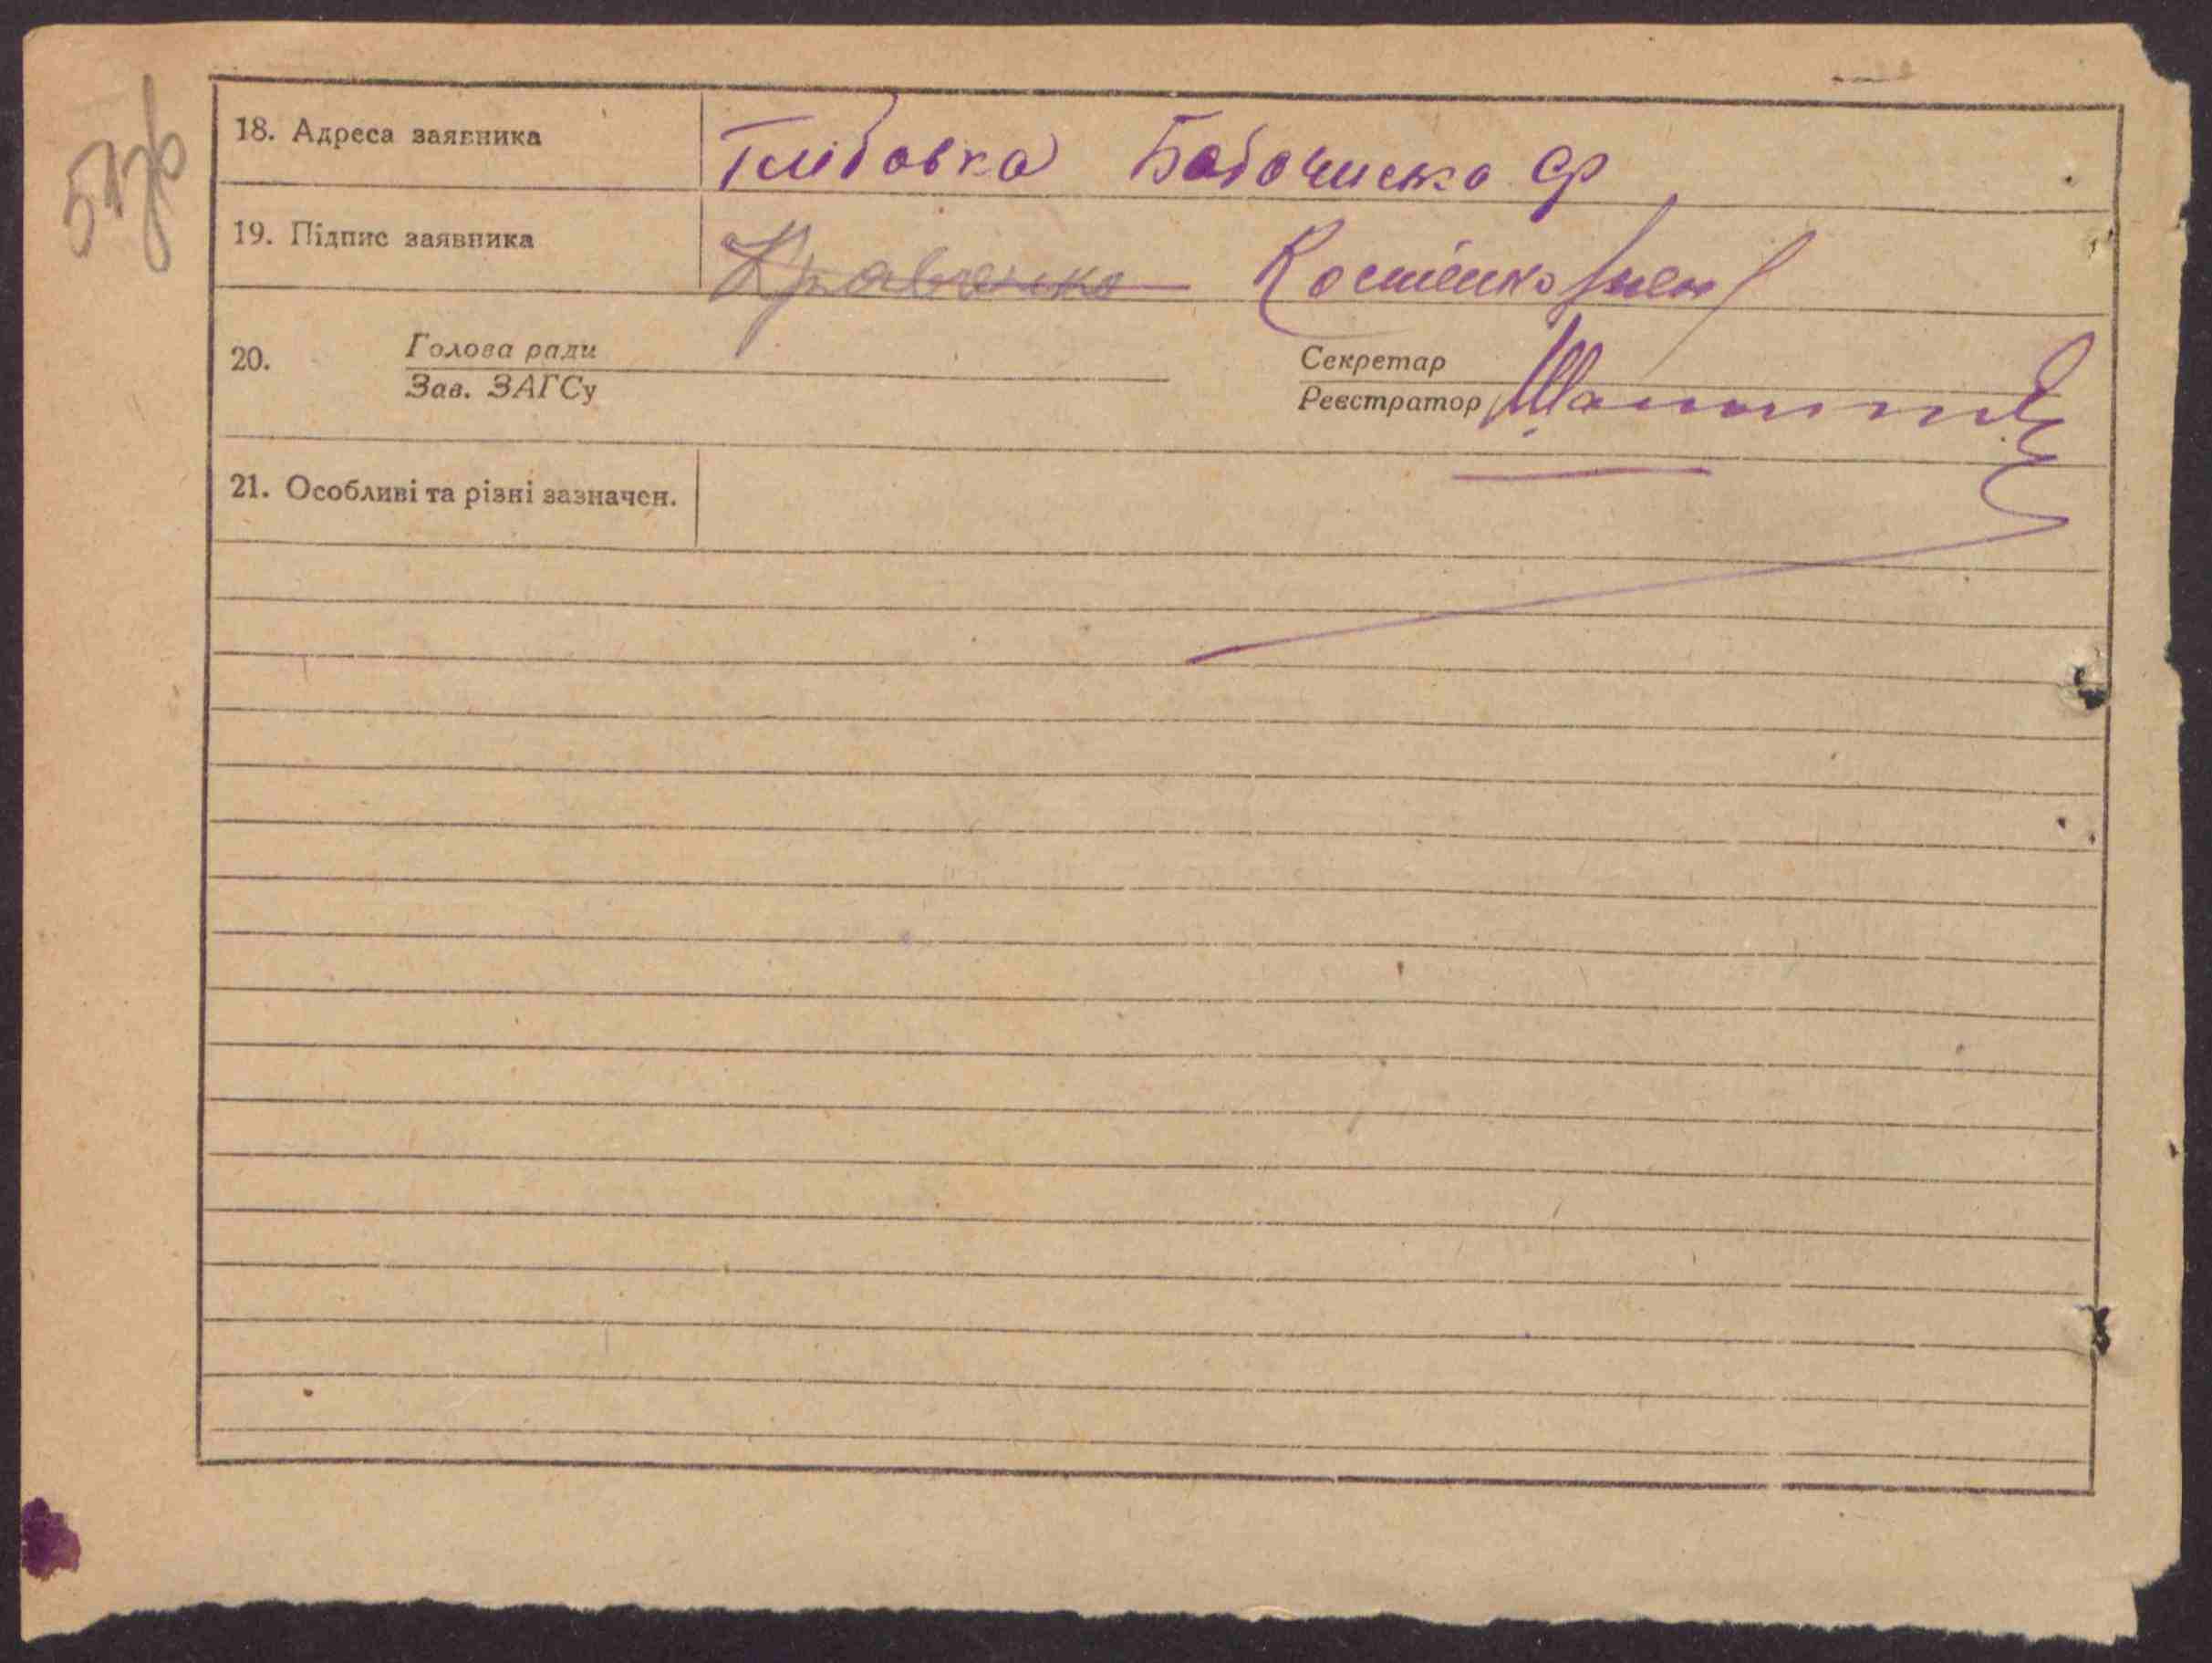 57зв
18. Адреса заявника Глібовка Бабачинсько Ср
19. Підпис заявника Кравченко Костенко
20. Голова ради Секретар
Зав. ЗАГСу Реєстратор
21. Особливі та різні зазначен.